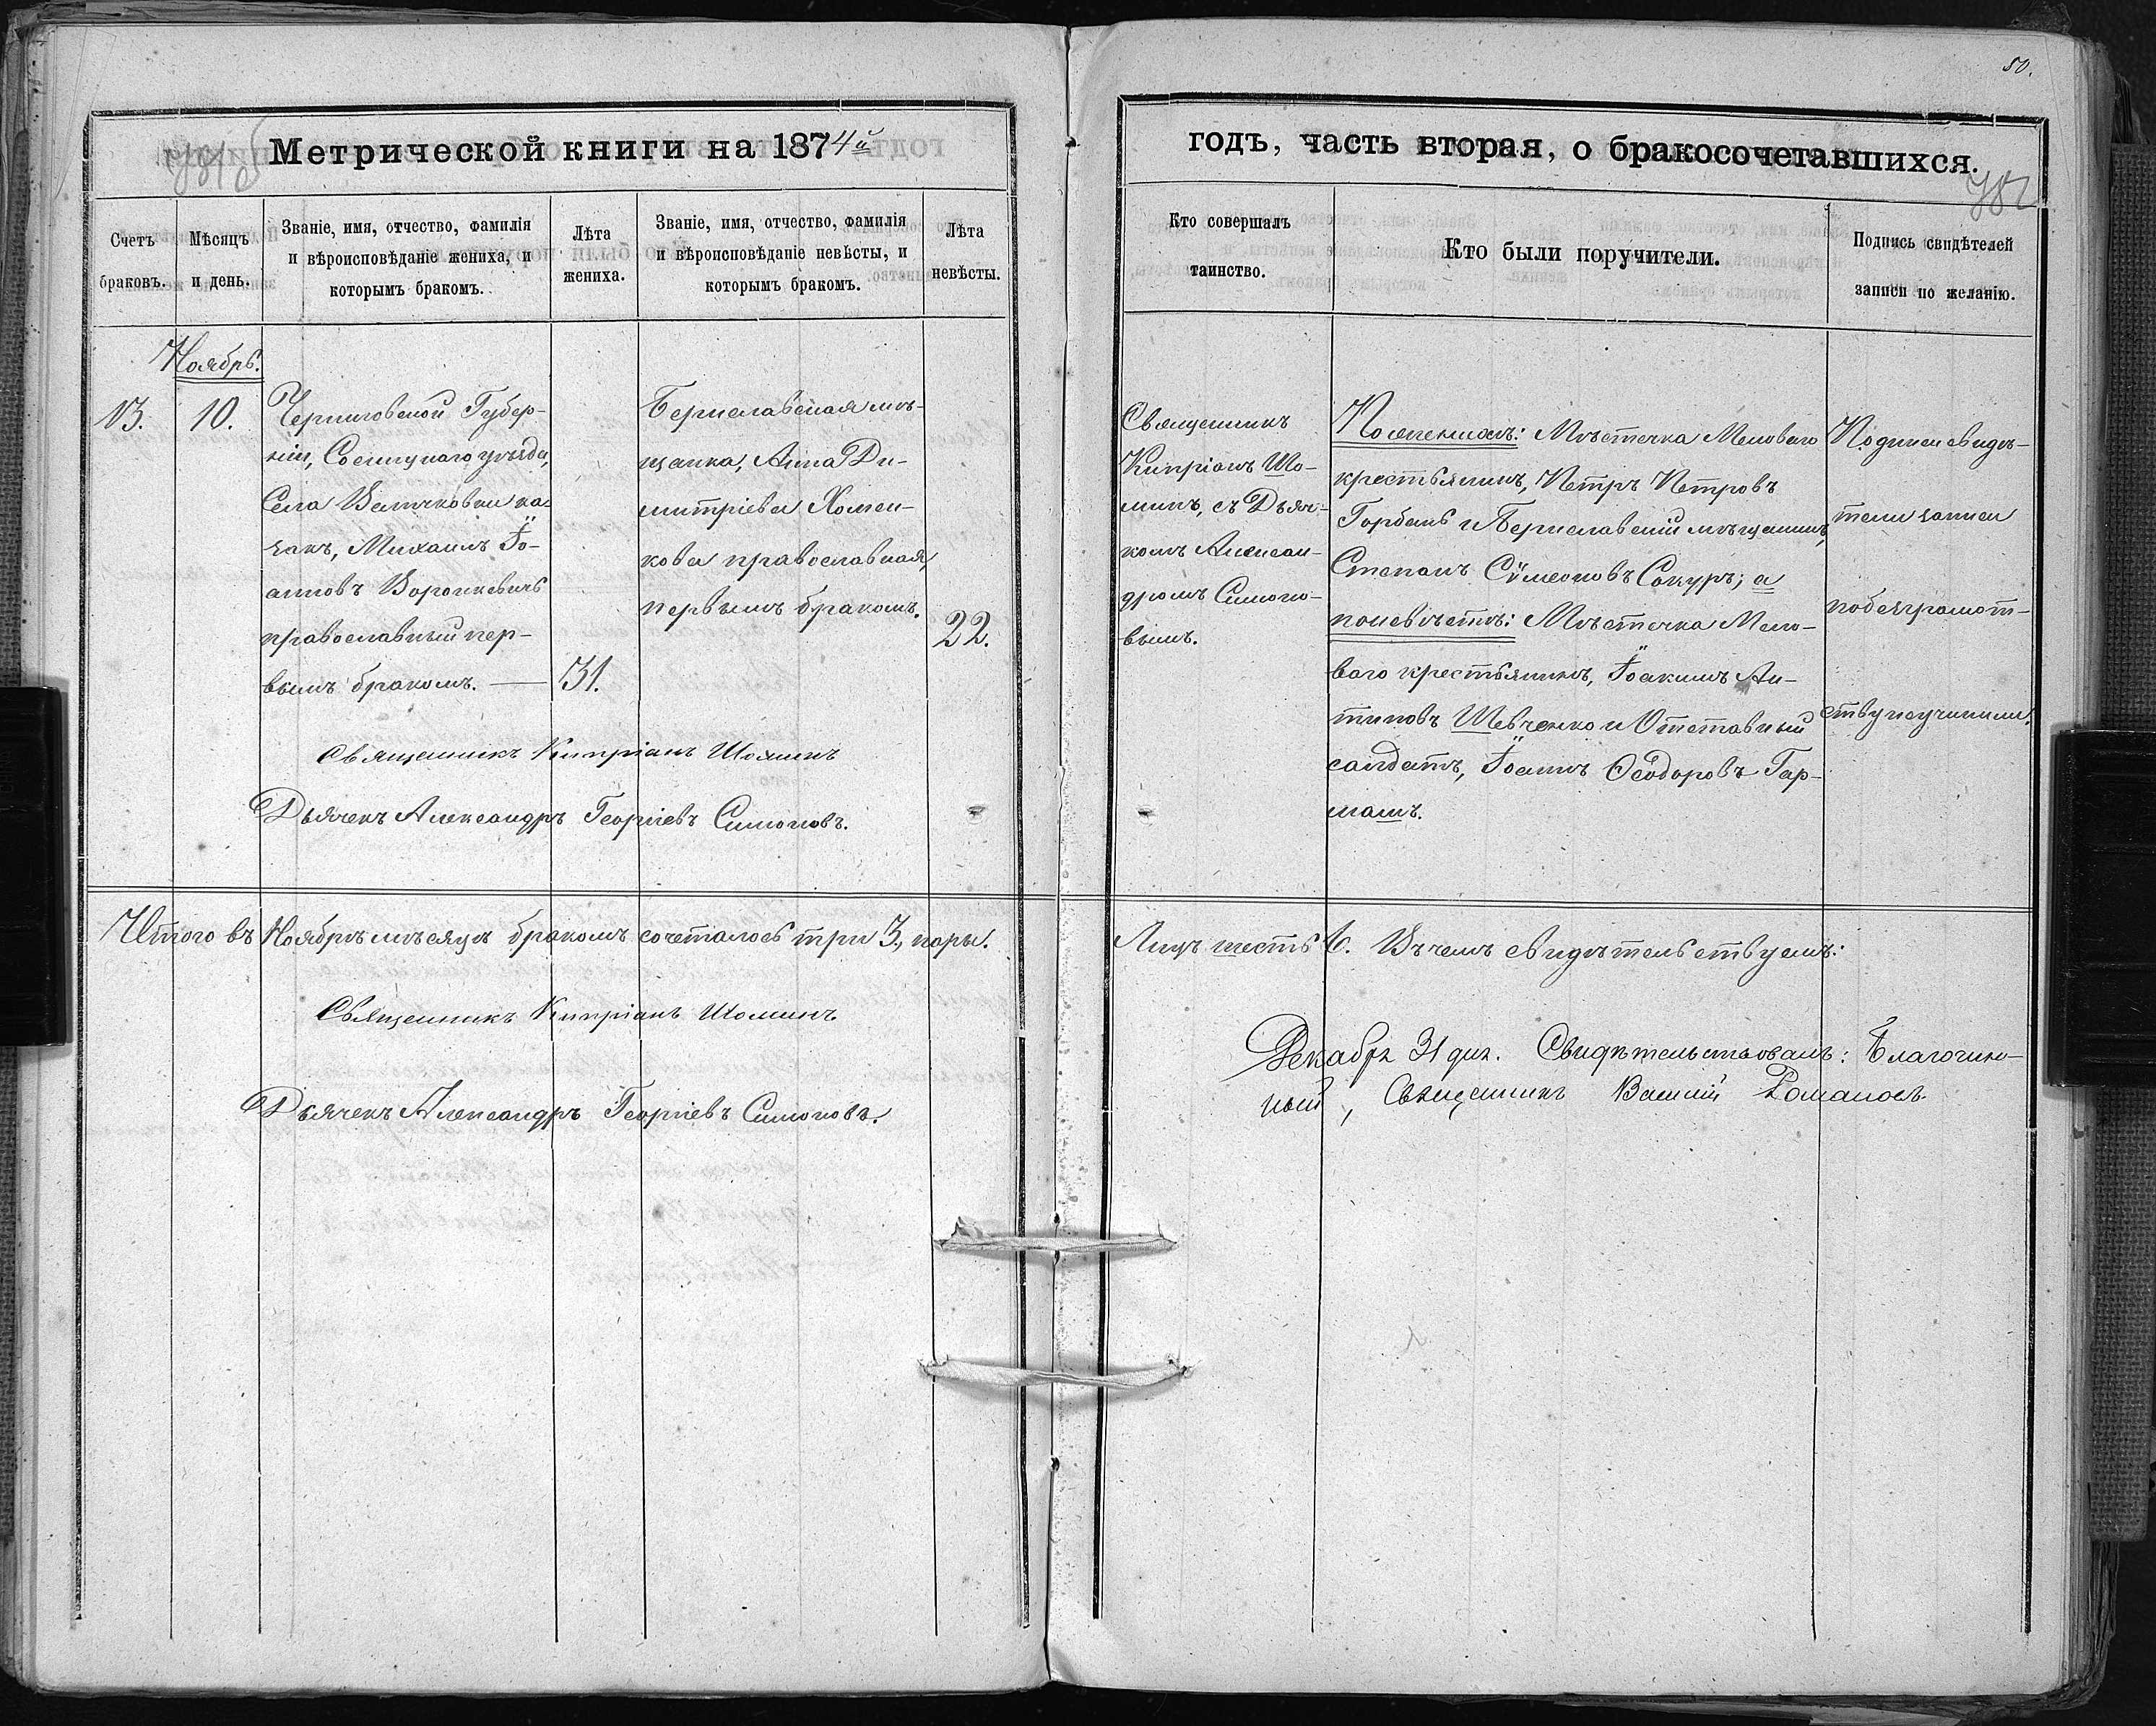 50.
Метрической книги на 1874й
годъ, часть вторая, о бракосочетавшихся.
782
Счетъ браковъ.
Мѣсяцъ и день.
Званіе, имя, отчество, фамилія
и вѣроисповѣданіе жениха, и
которымъ бракомъ.
Лѣта жениха.
Званіе, имя, отчество, фамилія
и вѣроисповѣданіе невѣсты, и
которымъ бракомъ.
Лѣта невѣсты.
Кто совершалъ
таинство.
Кто были поручители.
Подпись свидѣтелей
записи по желанію.
Ноябрь.
13.
10.
Черниговской Губер-
ніи, Сосницкаго уѣзда,
Села Величковки ка-
закъ, Михаилъ Іо-
анновъ Воронкевичъ
православный пер-
вымъ бракомъ. —
31.
Бериславская мѣ-
щанка, Анна Ди-
митріева Хомен-
кова православная,
первымъ бракомъ.
22.
Священникъ
Кипріанъ Шо-
минъ, съ Дьяч-
комъ Алексан-
дромъ Симоно-
вымъ.
По женихѣ: Мѣстечка Меловаго
крестьянинъ, Петръ Петровъ
Горбань и Бериславскій мѣщанинъ,
Степанъ Сѵмеоновъ Сокуръ; а
по невѣстѣ: Мѣстечка Мело-
ваго крестьянинъ, Іоакимъ Ан-
типовъ Шевченко и Отставный
салдатъ, Іоаннъ Ѳеодоровъ Гар-
машъ.
Подписи свидѣ-
тели записи
по безграмот-
ству не учинили.
Священникъ Кипріанъ Шоминъ
Дьячекъ Александръ Георгіевъ Симоновъ.
Итого въ Ноябрѣ мѣсяцѣ бракомъ сочеталось три 3, пары.
Лицъ шесть 6. Въ чемъ свидѣтельствуемъ:
Священникъ Кипріанъ Шоминъ.
Дьячекъ Александръ Георгіевъ Симоновъ.
Декабря 31 дня. Свидѣтельствовалъ: Благочин-
ный, Священникъ Василій Романовъ